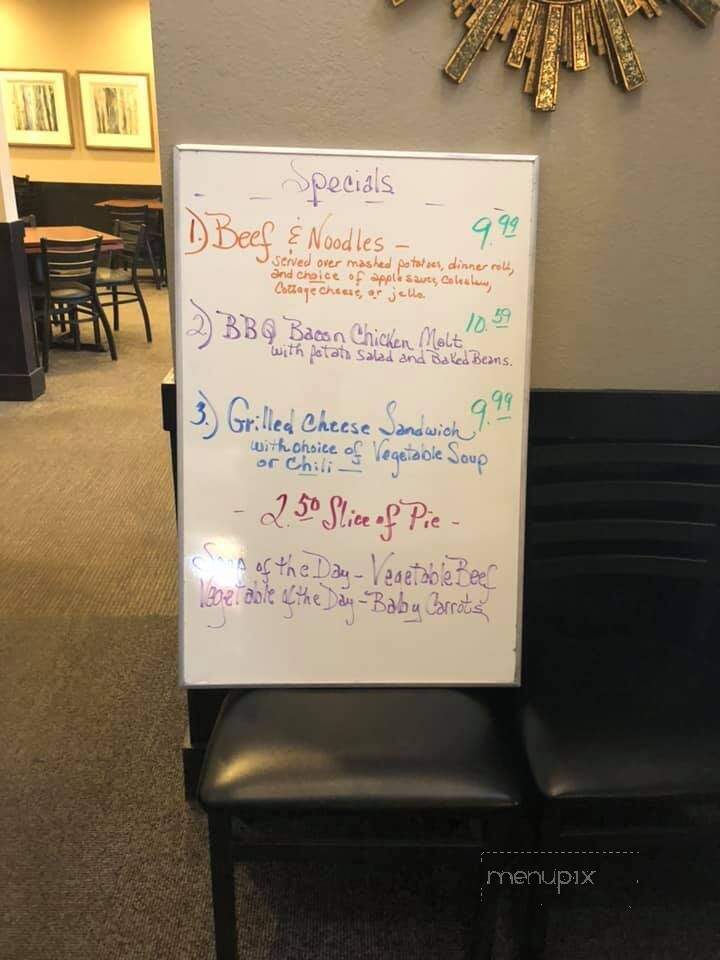 Specials
1.) Beef & Noodles - 9.99
served over mashed potatoes, dinner roll,
and choice of applesauce, Coleslaw,
Cottage cheese, or jello.
2) BBQ Bacon Chicken Melt 10.59
with potato salad and Baked Beans.
3.) Grilled Cheese Sandwich 9.99
with choice of Vegetable Soup
or Chili
- 2.50 Slice of Pie -
Soup of the Day - Vegetable Beef
Vegetable of the Day - Baby Carrots
menupix